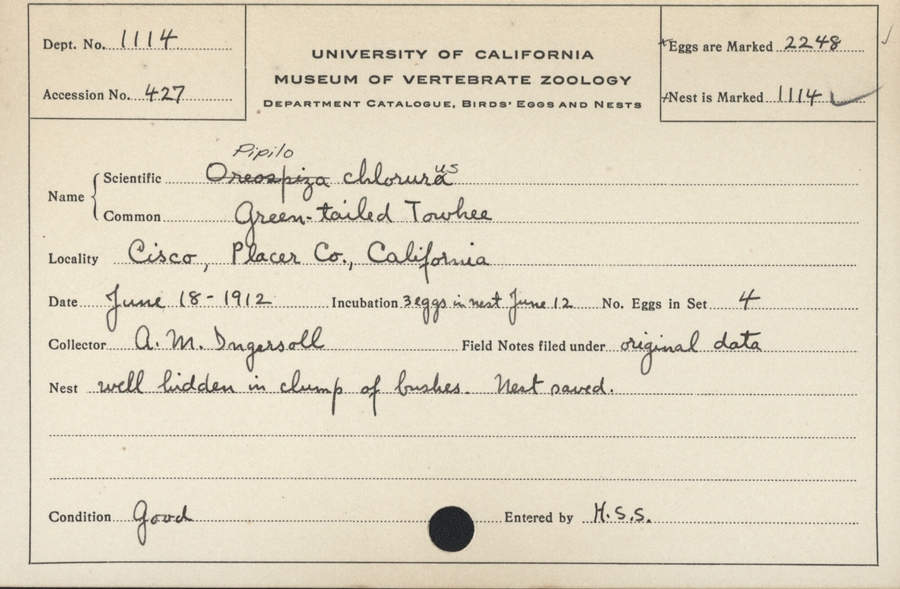 Dept. No. 1114
Accession No. 427
UNIVERSITY OF CALIFORNIA
MUSEUM OF VERTEBRATE ZOOLOGY
DEPARTMENT CATALOGUE, BIRDS' EGGS AND NESTS
Eggs are Marked 2248
Nest is Marked 1114
Pipilo
Name
Scientific Oreospiza chlorura us
Common Green-tailed Towhee
Locality Cisco, Placer Co., California
Date June 18-1912 Incubation 3 eggs in nest June 12 No. Eggs in Set 4
Collector A. M. Ingersoll Field Notes filed under original data
Nest well hidden in clump of bushes. Nest saved.
Condition Good Entered by H.S.S.